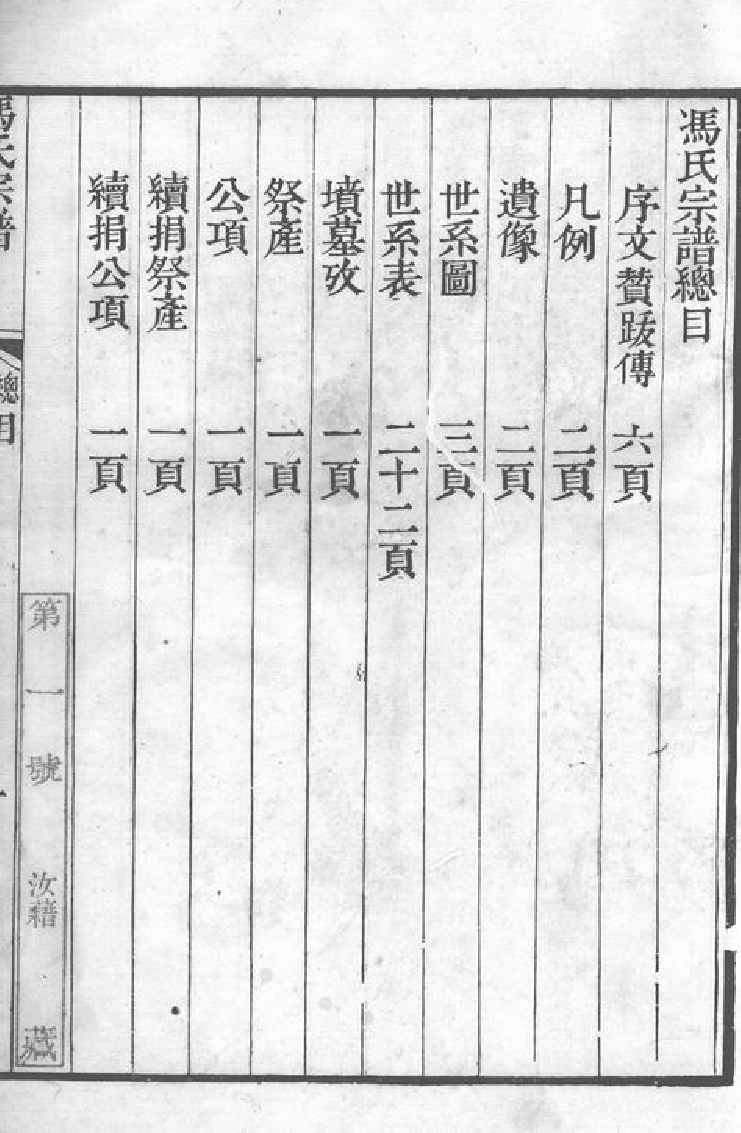 馮氏宗譜總目
序文贊跋傳 六頁
凡例 二頁
遺像 二頁
世系圖 三頁
世系表 二十二頁
墳墓攷 一頁
祭產 一頁
公項 一頁
續捐祭產 一頁
續捐公項 一頁
第一號 汝藉 藏
馮氏宗譜 總目 一